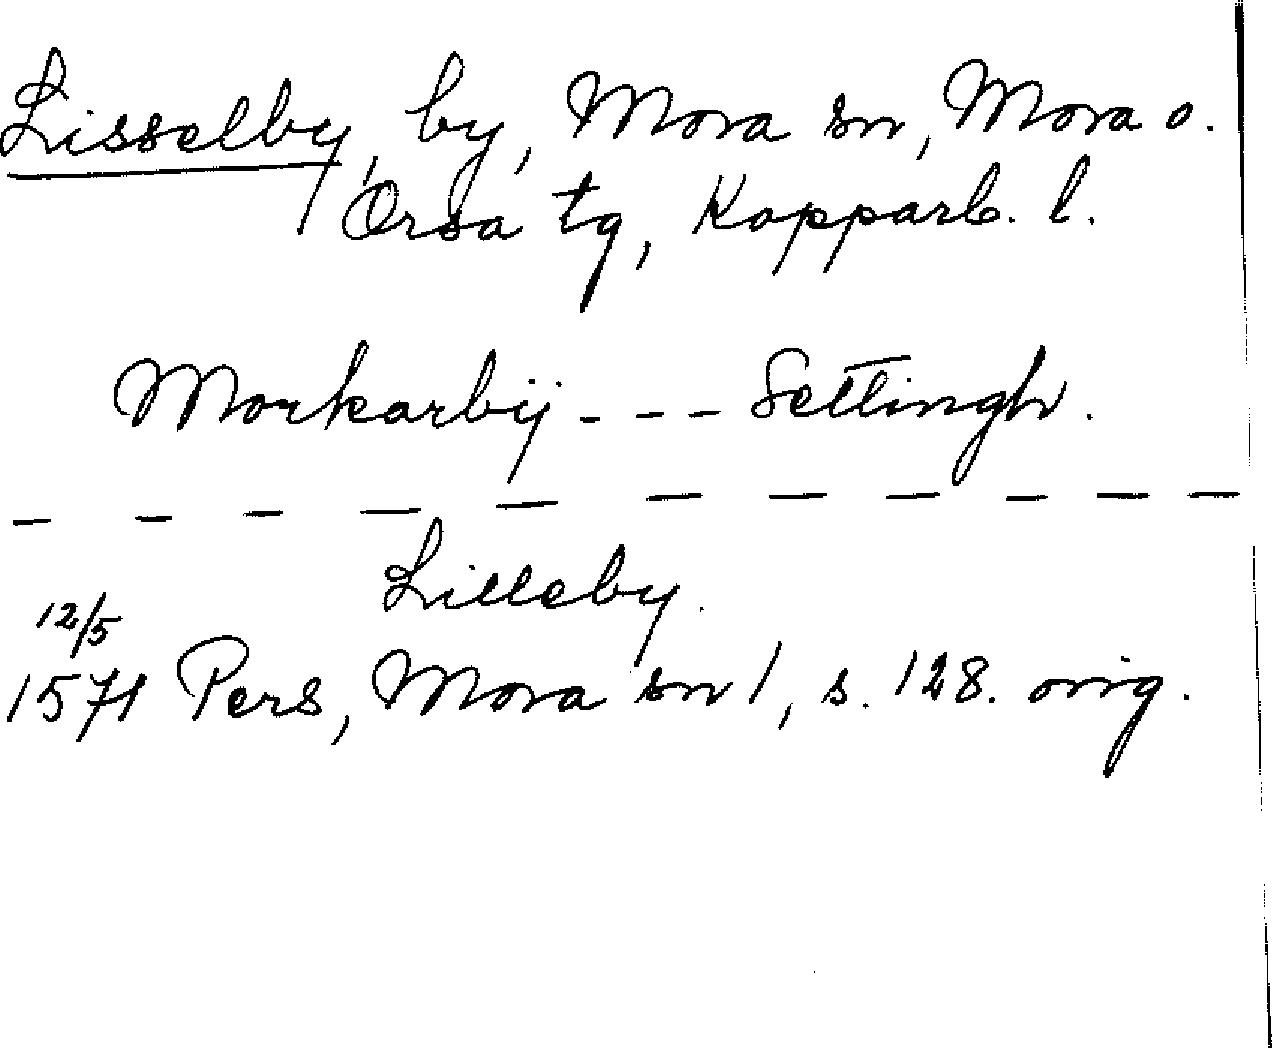 Lisselby, by, Mora sn, Mora o.
Orsa tg, Kopparb. l.
Morkarbÿ - - - Settingh.
— — — — — — — — — —
Lilleby.
12/5
1571 Pers, Mora sn 1, s. 128. orig.